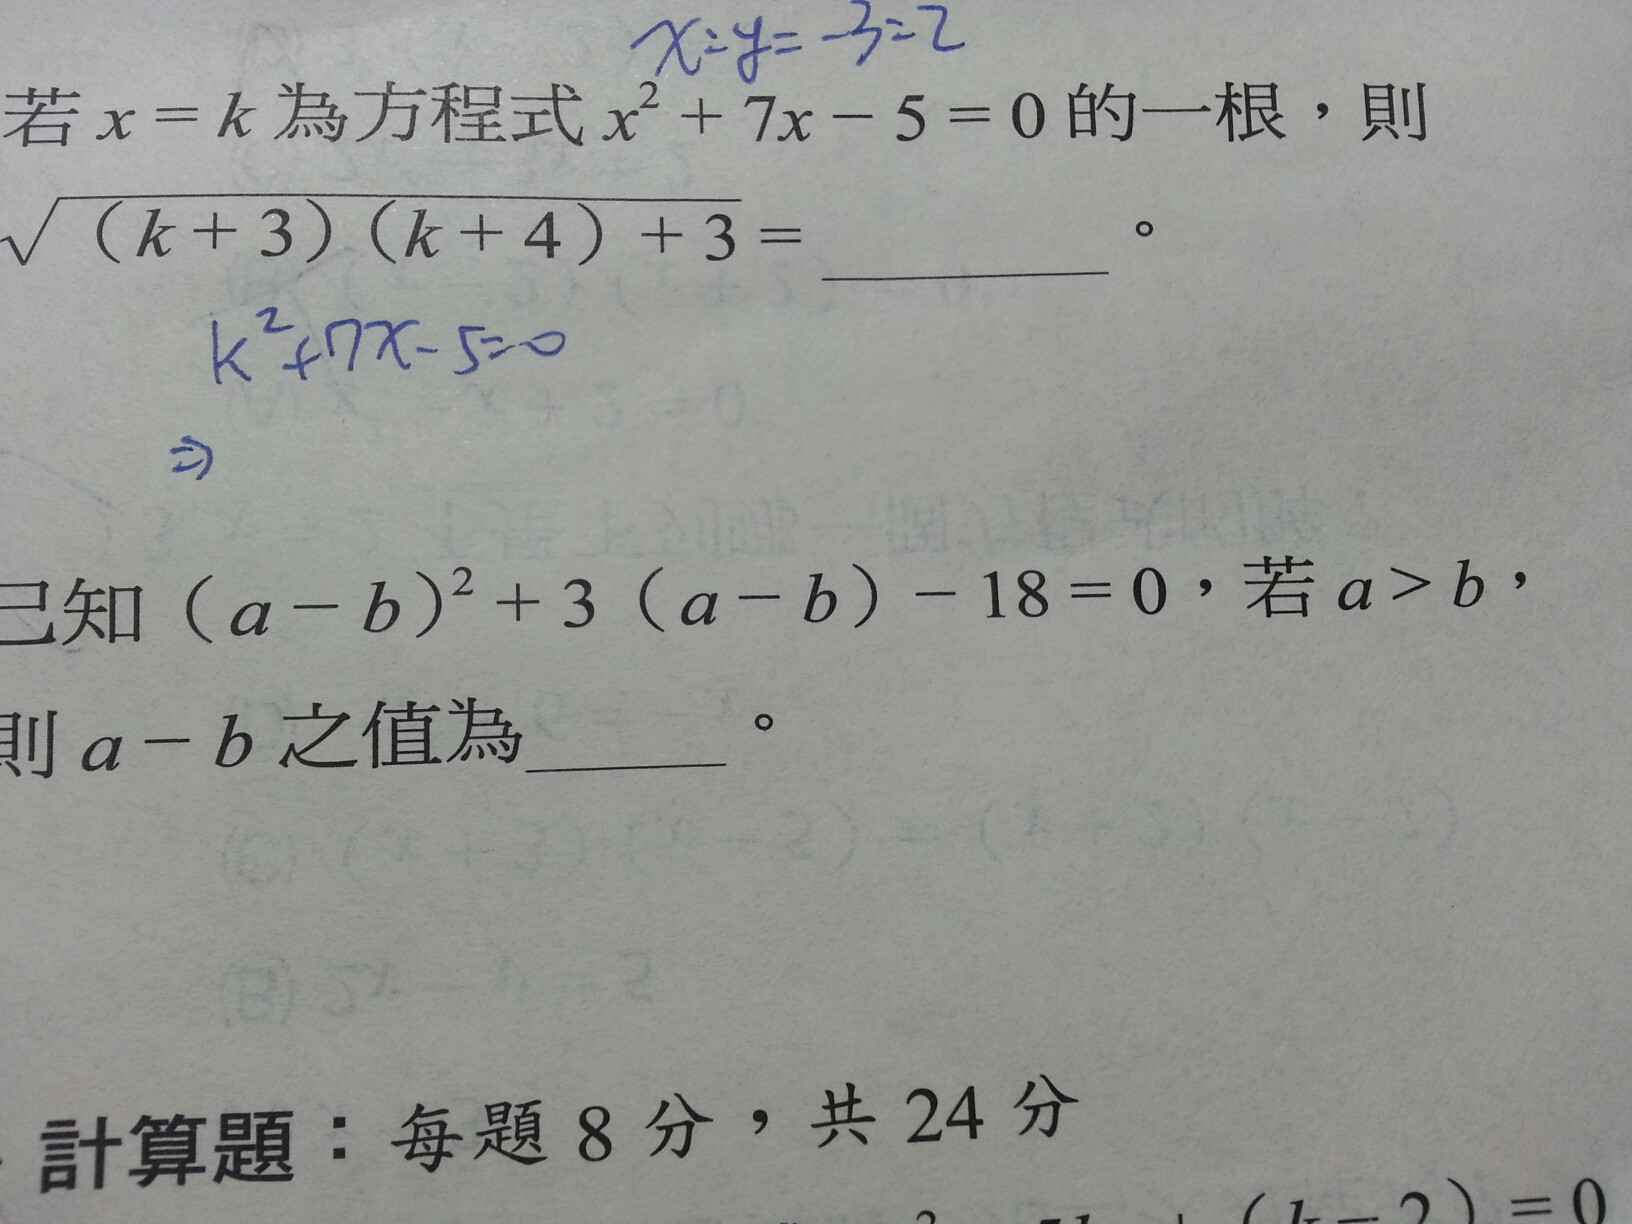 x=y=-3=2
若 x = k 為方程式 x² + 7x − 5 = 0 的一根，則
√(k + 3)(k + 4) + 3 = ______。
k²+7x-5=0
⇒
已知(a − b)² + 3(a − b) − 18 = 0，若 a > b，
則 a − b 之值為______。
計算題：每題 8 分，共 24 分
(k − 2) = 0